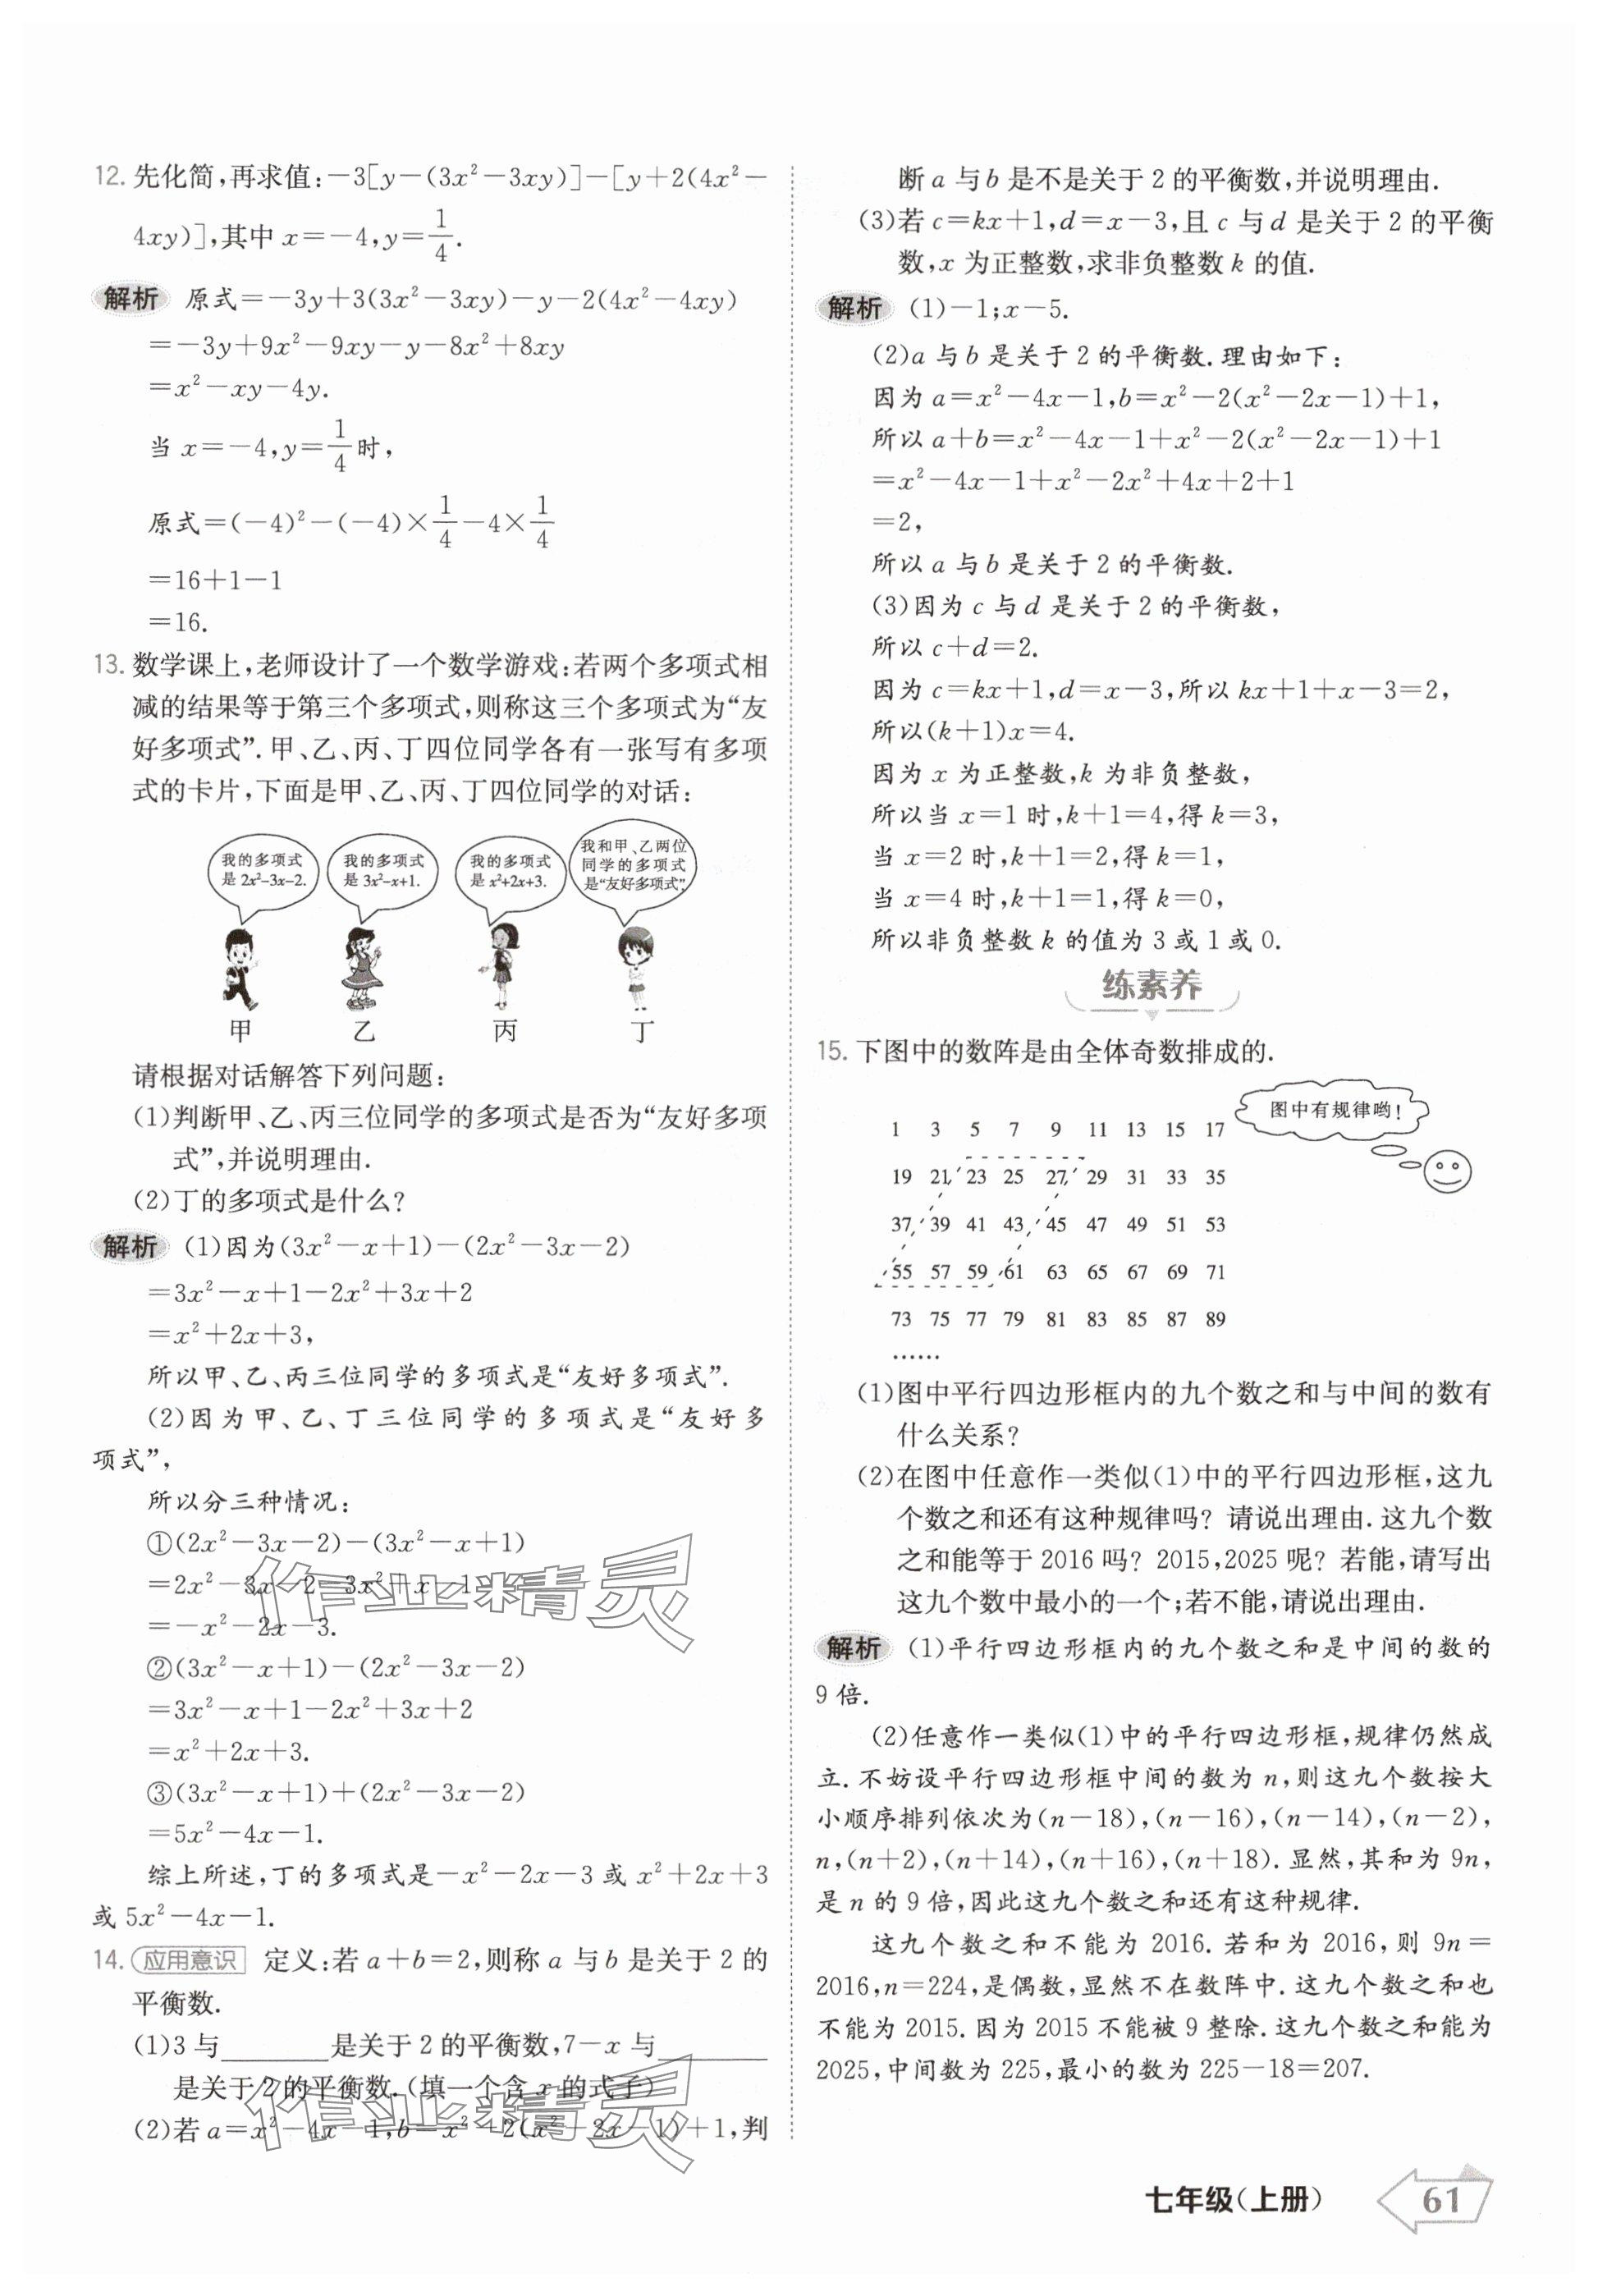 12. 先化简,再求值:−3[y−(3x²−3xy)]−[y+2(4x²−
4xy)],其中 x=−4,y=1/4.
解析 原式=−3y+3(3x²−3xy)−y−2(4x²−4xy)
=−3y+9x²−9xy−y−8x²+8xy
=x²−xy−4y.
当 x=−4,y=1/4时,
原式=(−4)²−(−4)×1/4−4×1/4
=16+1−1
=16.
13. 数学课上,老师设计了一个数学游戏:若两个多项式相
减的结果等于第三个多项式,则称这三个多项式为“友
好多项式”.甲、乙、丙、丁四位同学各有一张写有多项
式的卡片,下面是甲、乙、丙、丁四位同学的对话:
我的多项式
是 2x²−3x−2.
我的多项式
是 3x²−x+1.
我的多项式
是 x²+2x+3.
我和甲、乙两位
同学的多项式
是“友好多项式”.
甲 乙 丙 丁
请根据对话解答下列问题:
(1)判断甲、乙、丙三位同学的多项式是否为“友好多项
式”,并说明理由.
(2)丁的多项式是什么?
解析 (1)因为(3x²−x+1)−(2x²−3x−2)
=3x²−x+1−2x²+3x+2
=x²+2x+3,
所以甲、乙、丙三位同学的多项式是“友好多项式”.
(2)因为甲、乙、丁三位同学的多项式是“友好多
项式”,
所以分三种情况:
①(2x²−3x−2)−(3x²−x+1)
=2x²−3x−2−3x²+x−1
=−x²−2x−3.
②(3x²−x+1)−(2x²−3x−2)
=3x²−x+1−2x²+3x+2
=x²+2x+3.
③(3x²−x+1)+(2x²−3x−2)
=5x²−4x−1.
综上所述,丁的多项式是−x²−2x−3 或 x²+2x+3
或 5x²−4x−1.
14. 应用意识 定义:若 a+b=2,则称 a 与 b 是关于 2 的
平衡数.
(1)3 与________是关于 2 的平衡数,7−x 与________
是关于 2 的平衡数.(填一个含 x 的式子)
(2)若 a=x²−4x−1,b=x²−2(x²−2x−1)+1,判
断 a 与 b 是不是关于 2 的平衡数,并说明理由.
(3)若 c=kx+1,d=x−3,且 c 与 d 是关于 2 的平衡
数,x 为正整数,求非负整数 k 的值.
解析 (1)−1;x−5.
(2)a 与 b 是关于 2 的平衡数.理由如下:
因为 a=x²−4x−1,b=x²−2(x²−2x−1)+1,
所以 a+b=x²−4x−1+x²−2(x²−2x−1)+1
=x²−4x−1+x²−2x²+4x+2+1
=2,
所以 a 与 b 是关于 2 的平衡数.
(3)因为 c 与 d 是关于 2 的平衡数,
所以 c+d=2.
因为 c=kx+1,d=x−3,所以 kx+1+x−3=2,
所以(k+1)x=4.
因为 x 为正整数,k 为非负整数,
所以当 x=1 时,k+1=4,得 k=3,
当 x=2 时,k+1=2,得 k=1,
当 x=4 时,k+1=1,得 k=0,
所以非负整数 k 的值为 3 或 1 或 0.
练素养
15. 下图中的数阵是由全体奇数排成的.
图中有规律哟!
1 3 5 7 9 11 13 15 17
19 21 23 25 27 29 31 33 35
37 39 41 43 45 47 49 51 53
55 57 59 61 63 65 67 69 71
73 75 77 79 81 83 85 87 89
……
(1)图中平行四边形框内的九个数之和与中间的数有
什么关系?
(2)在图中任意作一类似(1)中的平行四边形框,这九
个数之和还有这种规律吗? 请说出理由.这九个数
之和能等于 2016 吗? 2015,2025 呢? 若能,请写出
这九个数中最小的一个;若不能,请说出理由.
解析 (1)平行四边形框内的九个数之和是中间的数的
9 倍.
(2)任意作一类似(1)中的平行四边形框,规律仍然成
立.不妨设平行四边形框中间的数为 n,则这九个数按大
小顺序排列依次为(n−18),(n−16),(n−14),(n−2),
n,(n+2),(n+14),(n+16),(n+18).显然,其和为 9n,
是 n 的 9 倍,因此这九个数之和还有这种规律.
这九个数之和不能为 2016.若和为 2016,则 9n=
2016,n=224,是偶数,显然不在数阵中.这九个数之和也
不能为 2015.因为 2015 不能被 9 整除.这九个数之和能为
2025,中间数为 225,最小的数为 225−18=207.
作业精灵
作业精灵
七年级(上册) 61